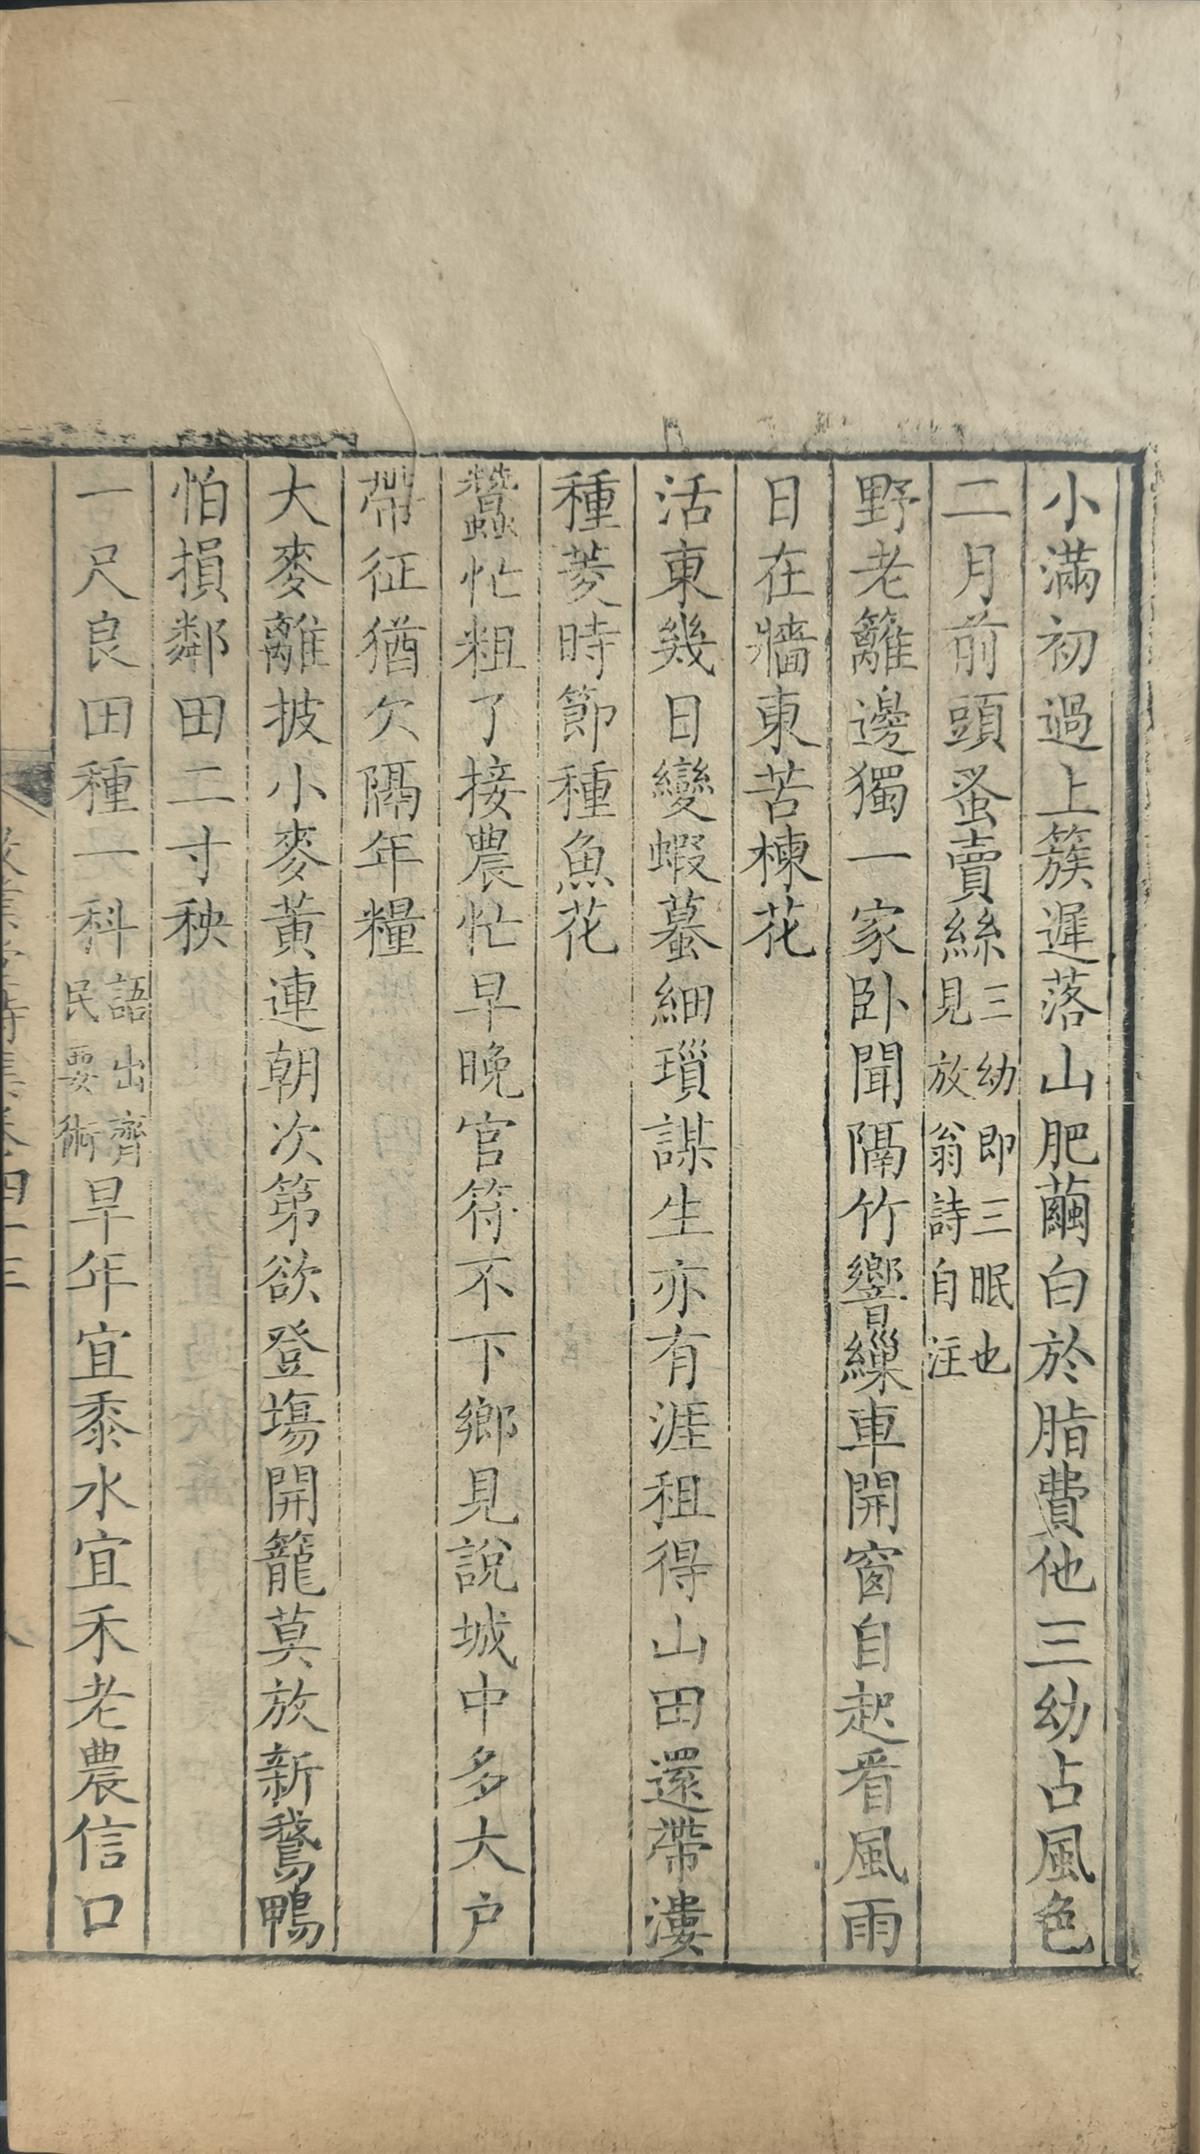 小滿初過上簇遲落山肥繭白於脂費他三幼占風色
二月前頭蚤賣絲三幼即三眠也見放翁詩自注
野老籬邊獨一家卧聞隔竹響繅車開窗自起看風雨
日在牆東苦楝花
活東幾日變蝦蟇細瑣謀生亦有涯租得山田還帶漊
種菱時節種魚花
蠶忙粗了接農忙早晚官符不下鄉見說城中多大户
帶征猶欠隔年糧
大麥離披小麥黃連朝次第欲登塲開籠莫放新鵞鴨
怕損鄰田二寸秧
一尺良田種一科語出齊民要術旱年宜黍水宜禾老農信口